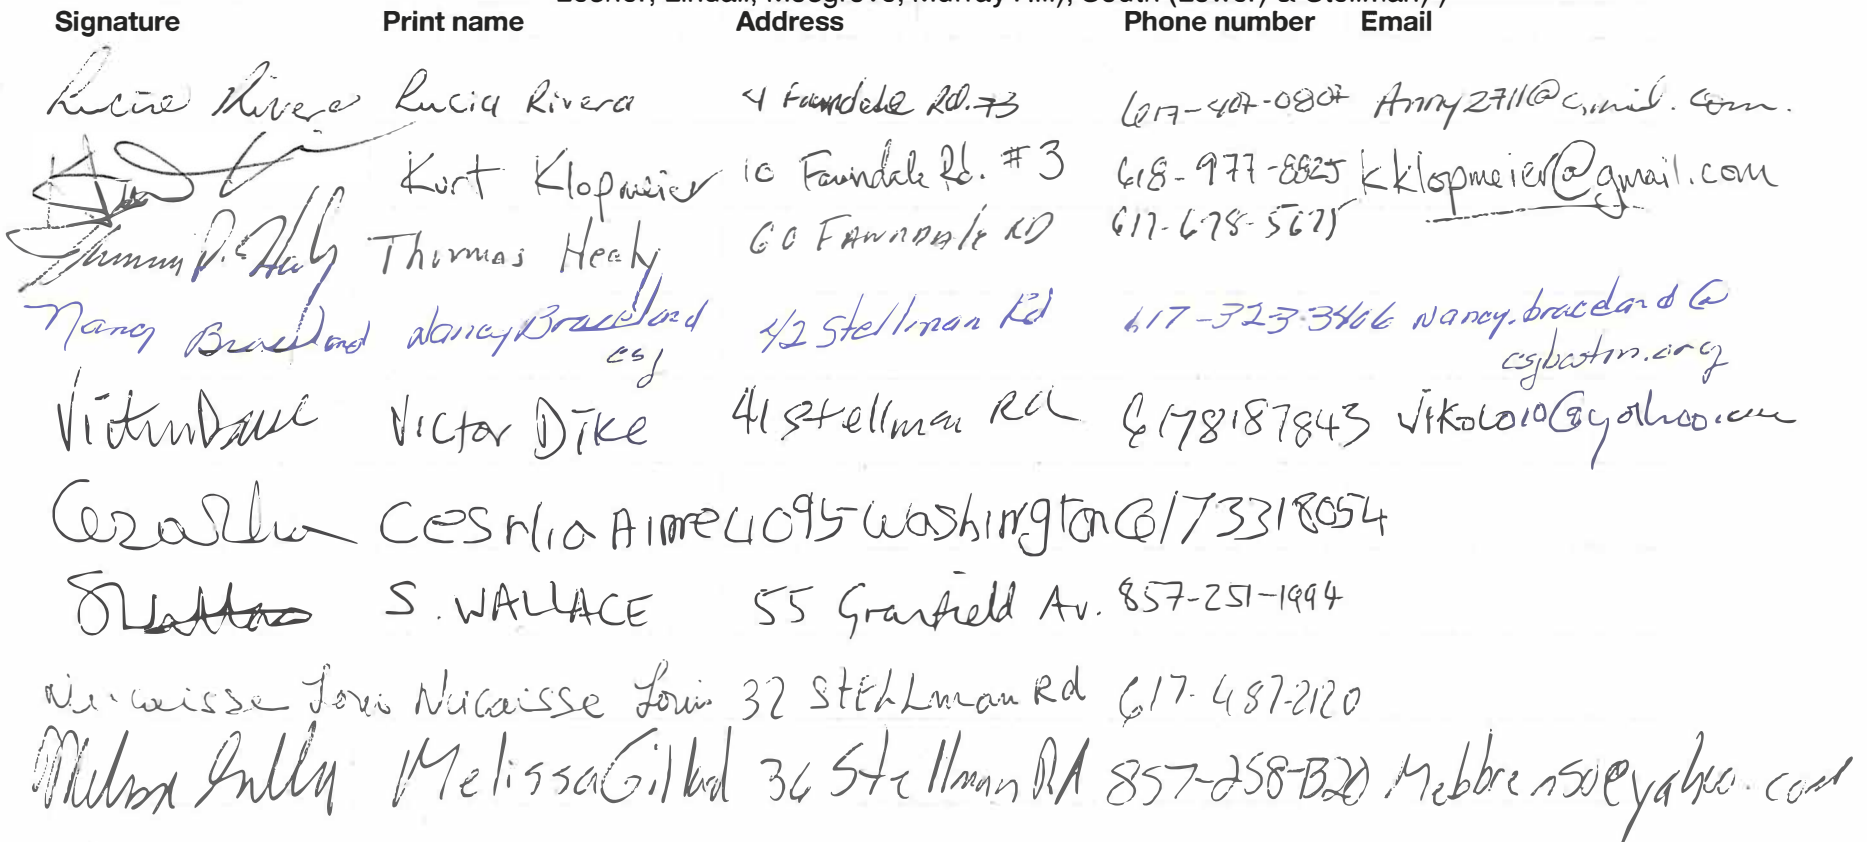 Signature Print name Address Phone number Email
Lucia Rivera Lucia Rivera 4 Fawndale Rd. 617-407-0807 Anny2711@gmail.com.
Kurt Klopmeier 10 Fawndale Rd. #3 618-977-8825 kklopmeier@gmail.com
Thomas P. Healy Thomas Healy 60 FAWNDAle RD 617-678-5675
Nancy Braceland Nancy Braceland 42 Stellman Rd 617-323-3406 nancy.braceland@
csj csjboston.org
Victor Dike 41 Stellman Rd 6178187843
Aime 4095 Washington 6173318054
S. WALLACE 55 Granfield Av. 857-251-1994
Nicaisse Louis Nicaisse Louis 32 Stellman Rd 617-487-2120
Melissa 36 Stellman Rd